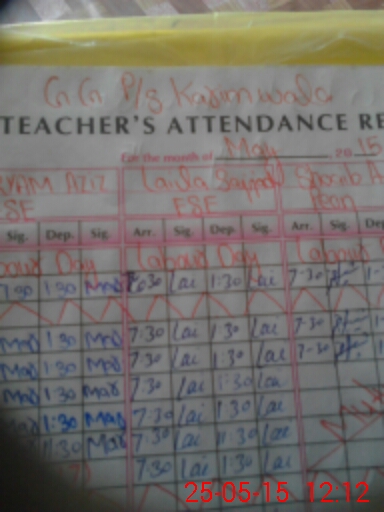 G G P/s Kazimwala
TEACHER'S ATTENDANCE RE
For the month of May 20 15
YAM AZIZ Laila Sajjad Shoaib A
SE ESE Peon
Sig. Dep. Sig. Arr. Sig. Dep. Sig. Arr. Sig. Dep
bour Day Labour Day Labour
7:30 1:30 Mar 7:30 Lai 1:30 Lai 7-30 1-
Mar 1:30 Mar 7:30 Lai 1:30 Lai 7-30 1-
Mar 1:30 Mar 7:30 Lai 1:30 Lai 7-30
Mar 1:30 Mar 7:30 Lai 1:30 Lai
Mar 1:30 Mar 7:30 Lai 1:30 Lai
Mar 1:30 Mar 7:30 Lai 1:30 Lai
7:30 Lai 1:30 Lai
25-05-15 12:12